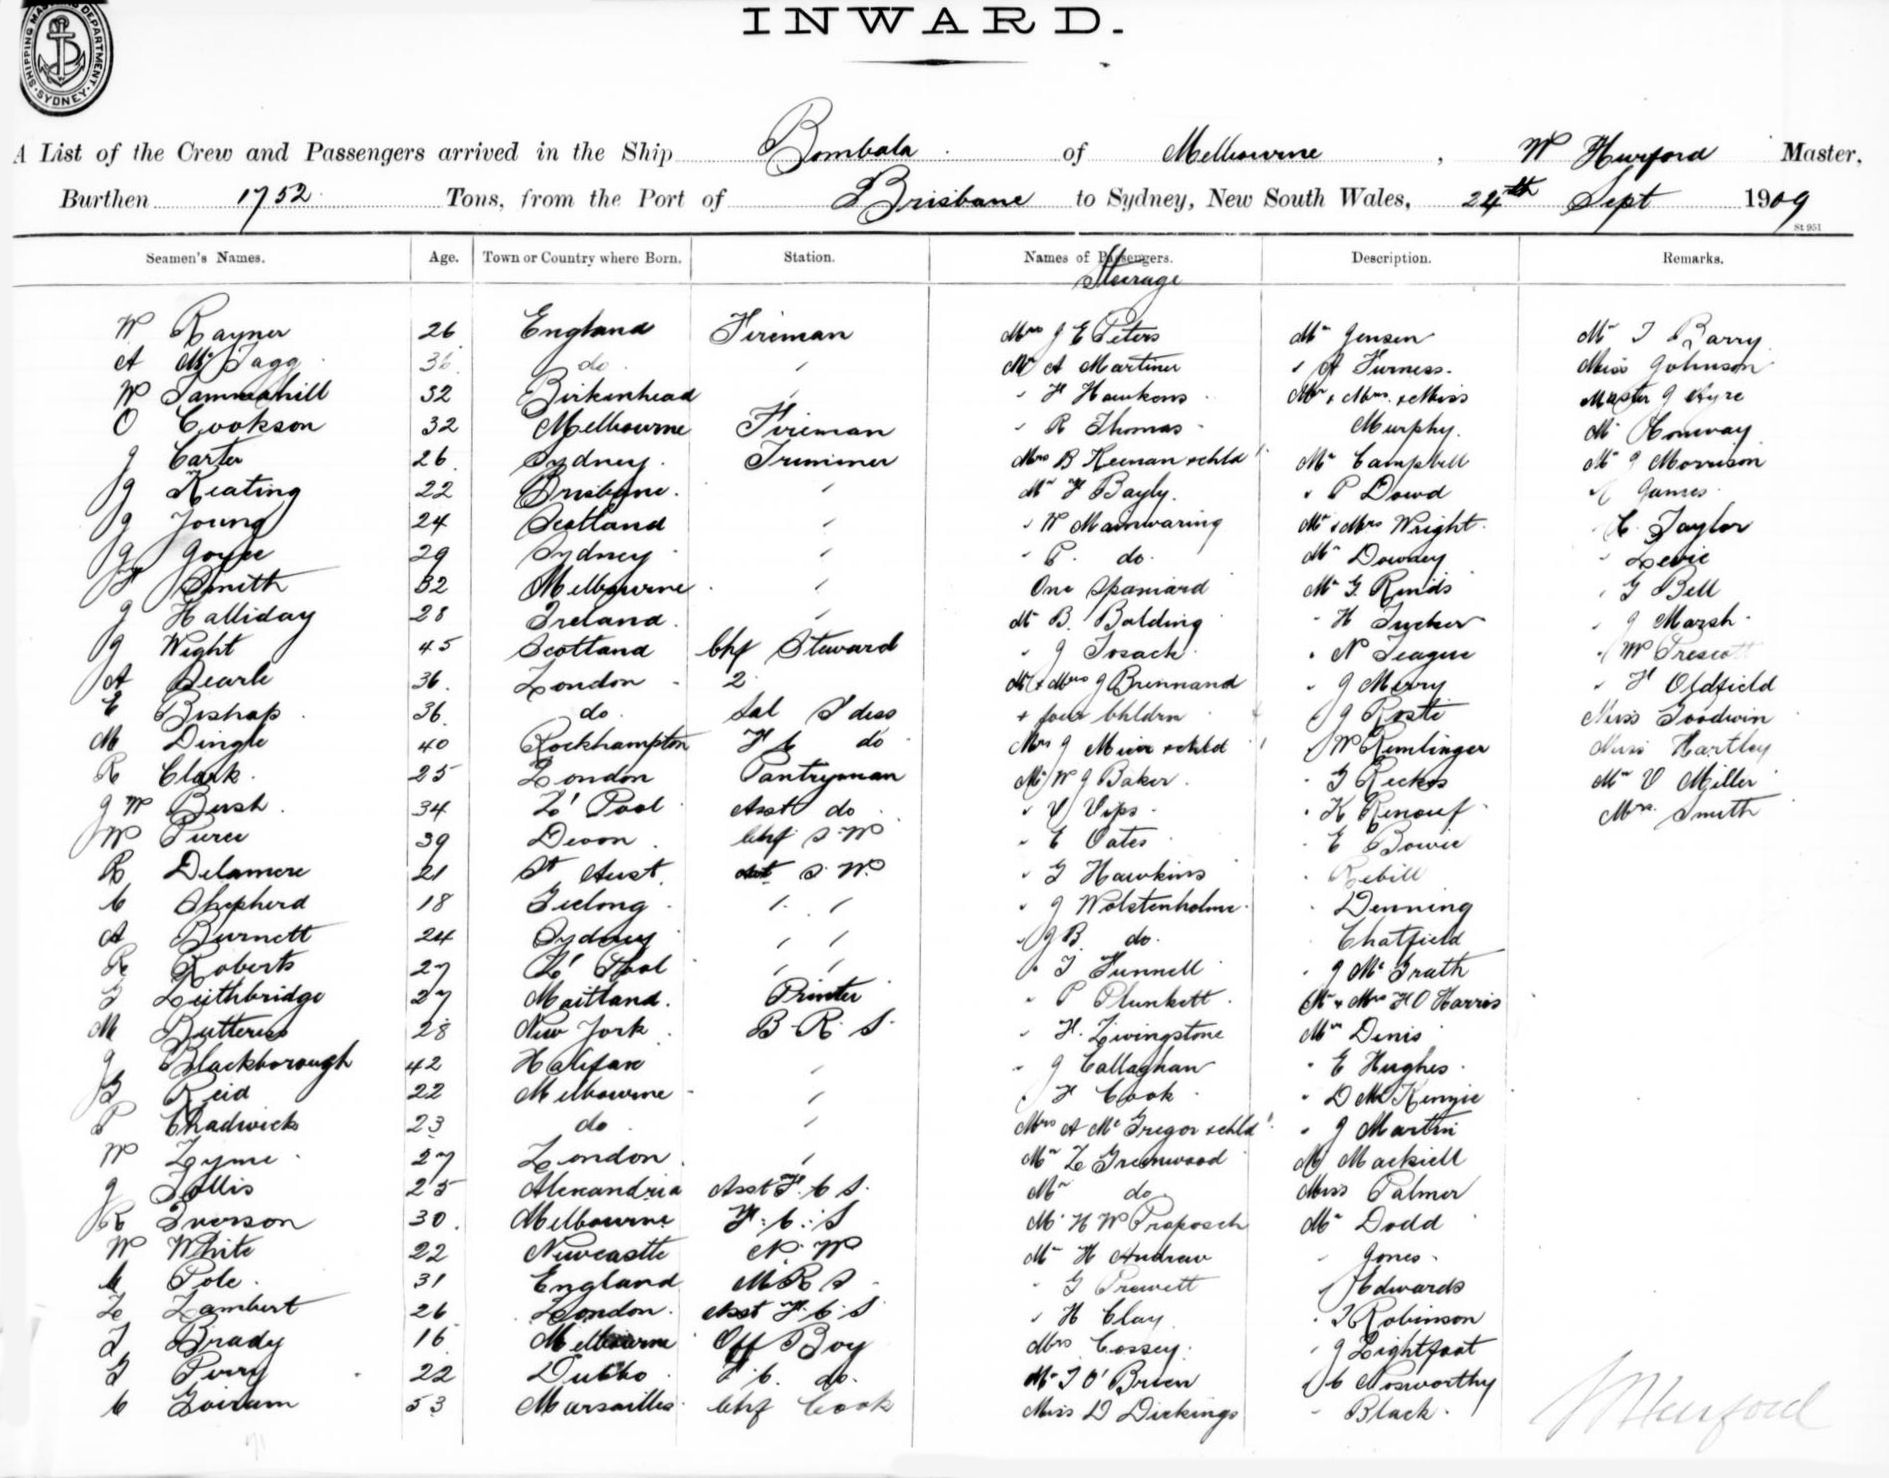 INWARD.
SHIPPING MASTERS DEPARTMENT. SYDNEY.
A List of the Crew and Passengers arrived in the Ship Bombala of Melbourne, W Hurford Master,
Burthen 1752 Tons, from the Port of Brisbane to Sydney, New South Wales, 24th Sept 1909
St 951
Seamen's Names. Age. Town or Country where Born. Station. Names of Passengers. Description. Remarks.
Steerage
W Rayner 26 England Fireman Mrs J E Peters Mr Jensen Mr T Barry
A McTagg 36 do " Mr A Martiner " A Furness. Miss Johnson
W Tammahill 32 Birkenhead " " H Hawkons Mr + Mrs. + Miss Master J Eyre
O Cookson 32 Melbourne Fireman " R Thomas Murphy. Mr Conway
J Carter 26 Sydney. Trimmer Mrs B Keenan + chld Mr Campbell Mr J Morrison
J Keating 22 Brisbane. " Mr H Bayly. " P Dowd " James
J Young 24 Scotland " " W Mainwaring Mr + Mrs Wright. C. Taylor
J Joyce 29 Sydney " " P. do. Mr Downey " Levie
F Smith 32 Melbourne " One Spaniard Mr G. Rinds " G Bell
J Halliday 28 Ireland. " Mr B. Balding " H Tucker " J Marsh.
J Wight 45 Scotland Chf Steward " J Tosack " N Teague " W Prescott
A Searle 36. London 2 Mr + Mrs J Brennand " J Merry " H Oldfield
E Bishop 36. do Sal S'dess + four chldrn " J Roste Miss Goodwin
M Dingle 40 Rockhampton F C do Mrs J Muir + chld " W Remlinger Miss Hartley
R Clark. 25 London Pantryman Mr W J Baker. " G Reckes Mr V Miller
J W Bush. 34 L'Pool Asst do " V Vips " K Renouf Mrs. Smith
W Purce 39 Devon Chf S W " E Oates " E Bowie
R Delamere 21 St Aust. Asst S W. " G Hawkins " Rebill
C Shepherd 18 Geelong " " " J Wolstenholme. " Denning
A Burnett 24 Sydney " " " J B. do. " Chatfield
R Roberts 27 L'Pool " " " T Funnell " J McGrath
G Leithbridge 27 Maitland. Printer " P Plunkett. Mr + Mrs H O Harris
M Butteress 28 New York B. R. S. " H. Livingstone Mr Denis
J Blackborough 42 Halifax " " J Callaghan " E Hughes.
G Reid 22 Melbourne " " H Cook " D McKenzie
P Chadwick 23 do " Mrs A McGregor + chld " J Martin
W Lyme 27 London " Mr L Greenwood M Mackiell
J Tollis 25 Alexandria Asst F. C S. Mr do Miss Palmer
R Iverson 30. Melbourne F. C. S Mr H W Proposch Mr Dodd
W White 22 Newcastle N. W Mr H Andrew " Jones.
C Pole. 31 England M. R S " G Prewett " Edwards
L Lambert 26 London. Asst F. C. S. " H Clay " T Robinson
T Brady 16 Melbourne Off Boy Mrs Cossey. " J Lightfoot
G Perry 22 Dubbo F C. do. Mr T O'Brien " C Nosworthy
C Goiram 53 Marsailles Chf Cook Miss D Dickings " Black.
W Hurford